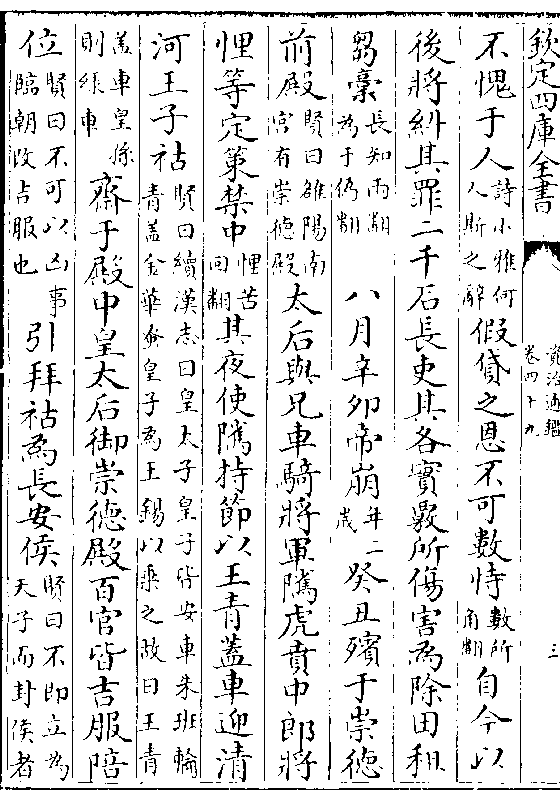 欽定四庫全書
資治通鑑
卷四十九
三
不愧于人詩小雅何人斯之辭假貸之恩不可數恃數所角翻自今以
後將糾其罪二千石長吏其各實覈所傷害為除田租
芻槀長知兩翻為于偽翻八月辛卯帝崩年二歲癸丑殯于崇德
前殿賢曰雒陽南宫有崇德殿太后與兄車騎將軍隲虎賁中郎將
悝等定策禁中悝苦回翻其夜使隲持節以王青蓋車迎清
河王子祜賢曰續漢志曰皇太子皇子皆安車朱班輪青蓋金華蚤皇子為王錫以乘之故曰王青
蓋車皇孫則緑車齋于殿中皇太后御崇德殿百官皆吉服陪
位賢曰不可以凶事臨朝改吉服也引拜祜為長安侯賢曰不即立為天子而封侯者